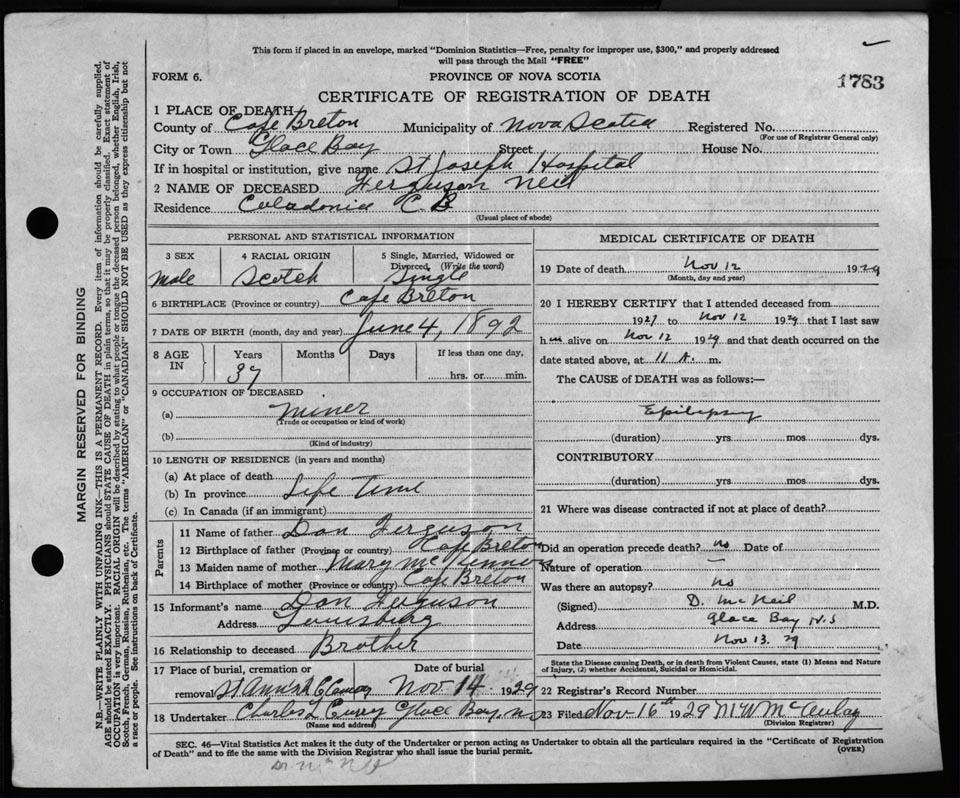 This form if placed in an envelope, marked "Dominion Statistics—Free, penalty for improper use, $300," and properly addressed
will pass through the Mail "FREE"
FORM 6.
PROVINCE OF NOVA SCOTIA
1783
CERTIFICATE OF REGISTRATION OF DEATH
1 PLACE OF DEATH
County of Cape Breton Municipality of Nova Scotia Registered No.
(For use of Registrar General only)
City or Town Glace Bay Street House No.
If in hospital or institution, give name St Joseph Hospital
2 NAME OF DECEASED Ferguson Neil
Residence Caledonia C.B
(Usual place of abode)
PERSONAL AND STATISTICAL INFORMATION
3 SEX 4 RACIAL ORIGIN 5 Single, Married, Widowed or
Divorced, (Write the word)
Male Scotch Single
6 BIRTHPLACE (Province or country) Cape Breton
7 DATE OF BIRTH (month, day and year) June 4, 1892
8 AGE IN Years Months Days If less than one day,
37 hrs. or min.
9 OCCUPATION OF DECEASED
(a) Miner
(Trade or occupation or kind of work)
(b)
(Kind of industry)
10 LENGTH OF RESIDENCE (in years and months)
(a) At place of death
(b) In province Life Time
(c) In Canada (if an immigrant)
Parents
11 Name of father Dan Ferguson
12 Birthplace of father (Province or country) Cape Breton
13 Maiden name of mother Mary McKinnon
14 Birthplace of mother (Province or country) Cape Breton
15 Informant's name Dan Ferguson
Address Louisburg
16 Relationship to deceased Brother
17 Place of burial, cremation or Date of burial
removal Nov 14 1929
18 Undertaker Charles L Curry Glace Bay, N.S
(Name and address)
MEDICAL CERTIFICATE OF DEATH
19 Date of death Nov 12 1929
(Month, day and year)
20 I HEREBY CERTIFY that I attended deceased from
1927 to Nov 12 1929 that I last saw
him alive on Nov 12 1929 and that death occurred on the
date stated above, at 11 A. m.
The CAUSE of DEATH was as follows:—
Epilepsy
(duration) yrs mos dys.
CONTRIBUTORY
(duration) yrs mos dys.
21 Where was disease contracted if not at place of death?
Did an operation precede death? no Date of
Nature of operation —
Was there an autopsy? no
(Signed) D. McNeil M.D.
Address Glace Bay N.S
Date Nov 13. 29
State the Disease causing Death, or in death from Violent Causes, state (1) Means and Nature
of Injury, (2) whether Accidental, Suicidal or Homicidal.
22 Registrar's Record Number
23 Filed Nov 16th 1929 M W McAulay
(Division Registrar)
SEC. 46—Vital Statistics Act makes it the duty of the Undertaker or person acting as Undertaker to obtain all the particulars required in the "Certificate of Registration
of Death" and to file the same with the Division Registrar who shall issue the burial permit.
(OVER)
MARGIN RESERVED FOR BINDING
N.B.—WRITE PLAINLY WITH UNFADING INK—THIS IS A PERMANENT RECORD. Every item of information should be carefully supplied.
AGE should be stated EXACTLY. PHYSICIANS should STATE CAUSE OF DEATH in plain terms, so that it may be properly classified. Exact statement of
OCCUPATION is very important. RACIAL ORIGIN will be described by stating to what people or tongue the deceased person belonged, whether English, Irish,
Scotch, French, German, Russian, Ruthenian, etc. The terms "AMERICAN" or "CANADIAN" SHOULD NOT BE USED as they express citizenship but not
a race or people. See instructions on back of Certificate.